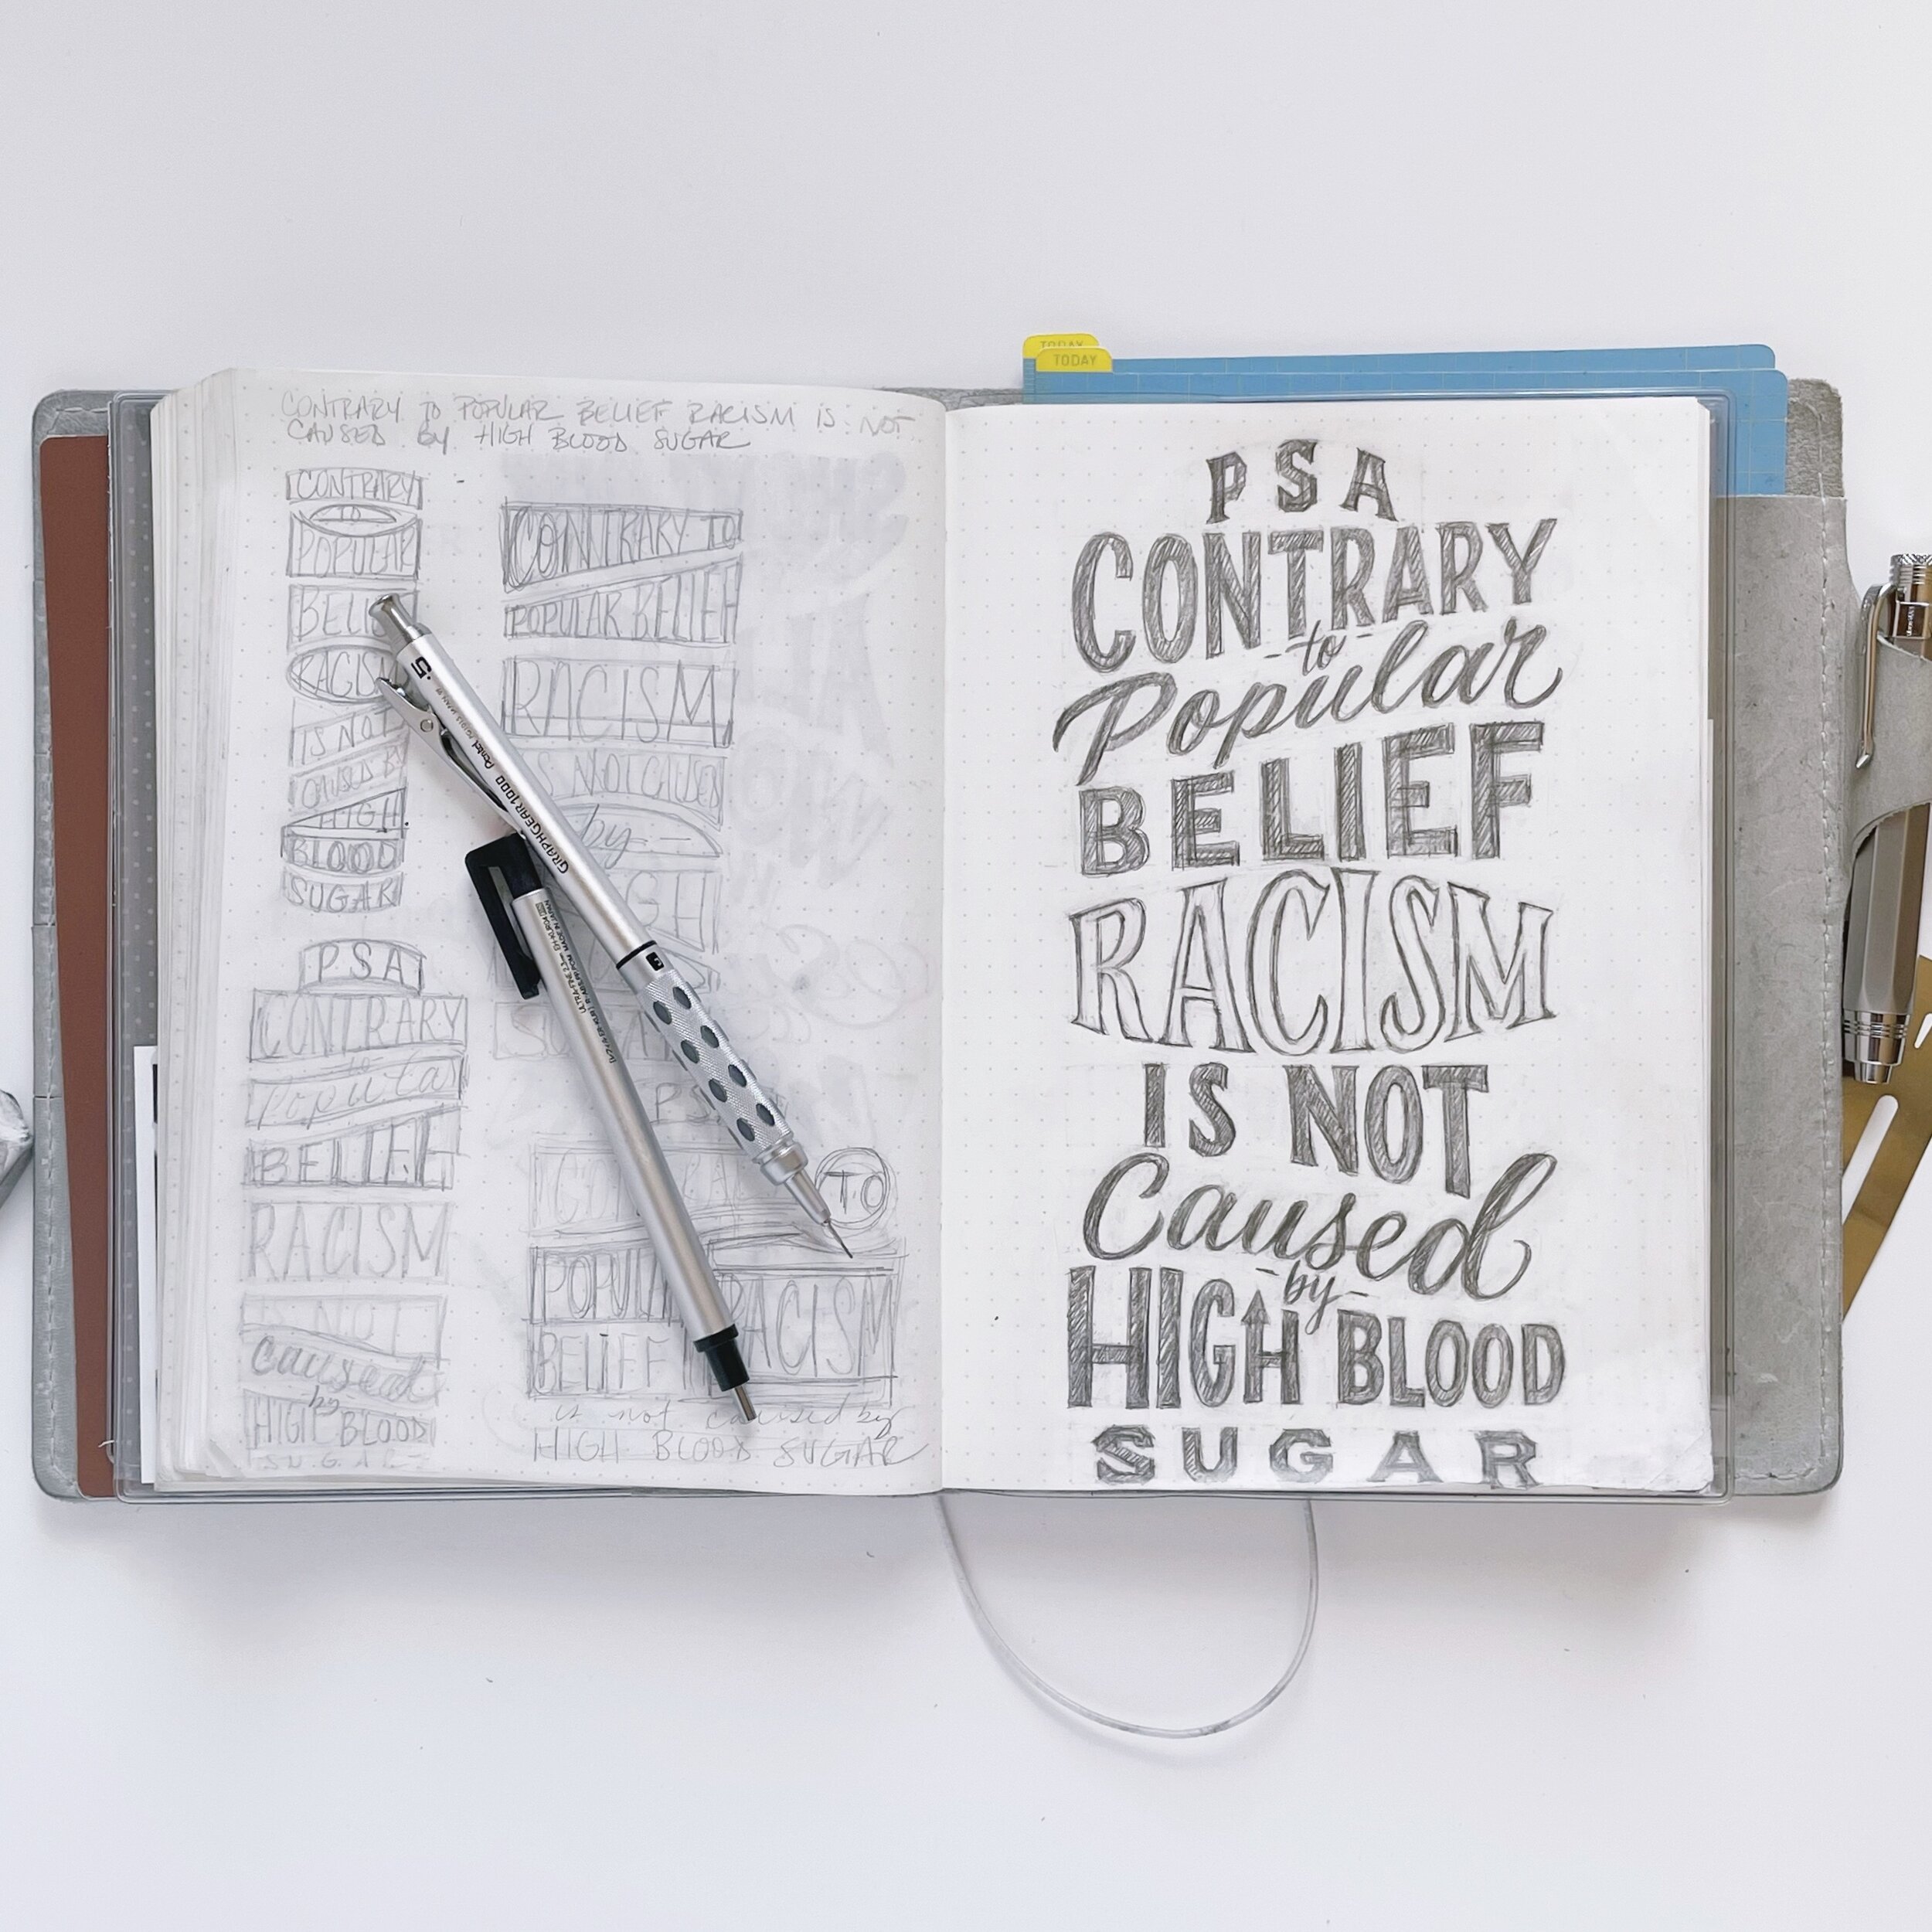 CONTRARY TO POPULAR BELIEF RACISM IS NOT
CAUSED by HIGH BLOOD SUGAR
CONTRARY
TO
POPULAR
BELIE
RACISM
IS NOT
CAUSED BY
HIGH
BLOOD
SUGAR
PSA
CONTRARY
to
Popular
BELIEF
RACISM
IS NOT
Caused
by
HIGH BLOOD
SUGAR
CONTRARY TO
POPULAR BELIEF
RACISM
IS NOT CAUSED
by
GH
PS
TO
POPUL RACISM
BELIEF
is not caused by
HIGH BLOOD SUGAR
.5
Pentel
GRAPHGEAR 1000
TODAY
TODAY
PSA
CONTRARY
-to-
Popular
BELIEF
RACISM
IS NOT
Caused
-by-
HIGH BLOOD
SUGAR